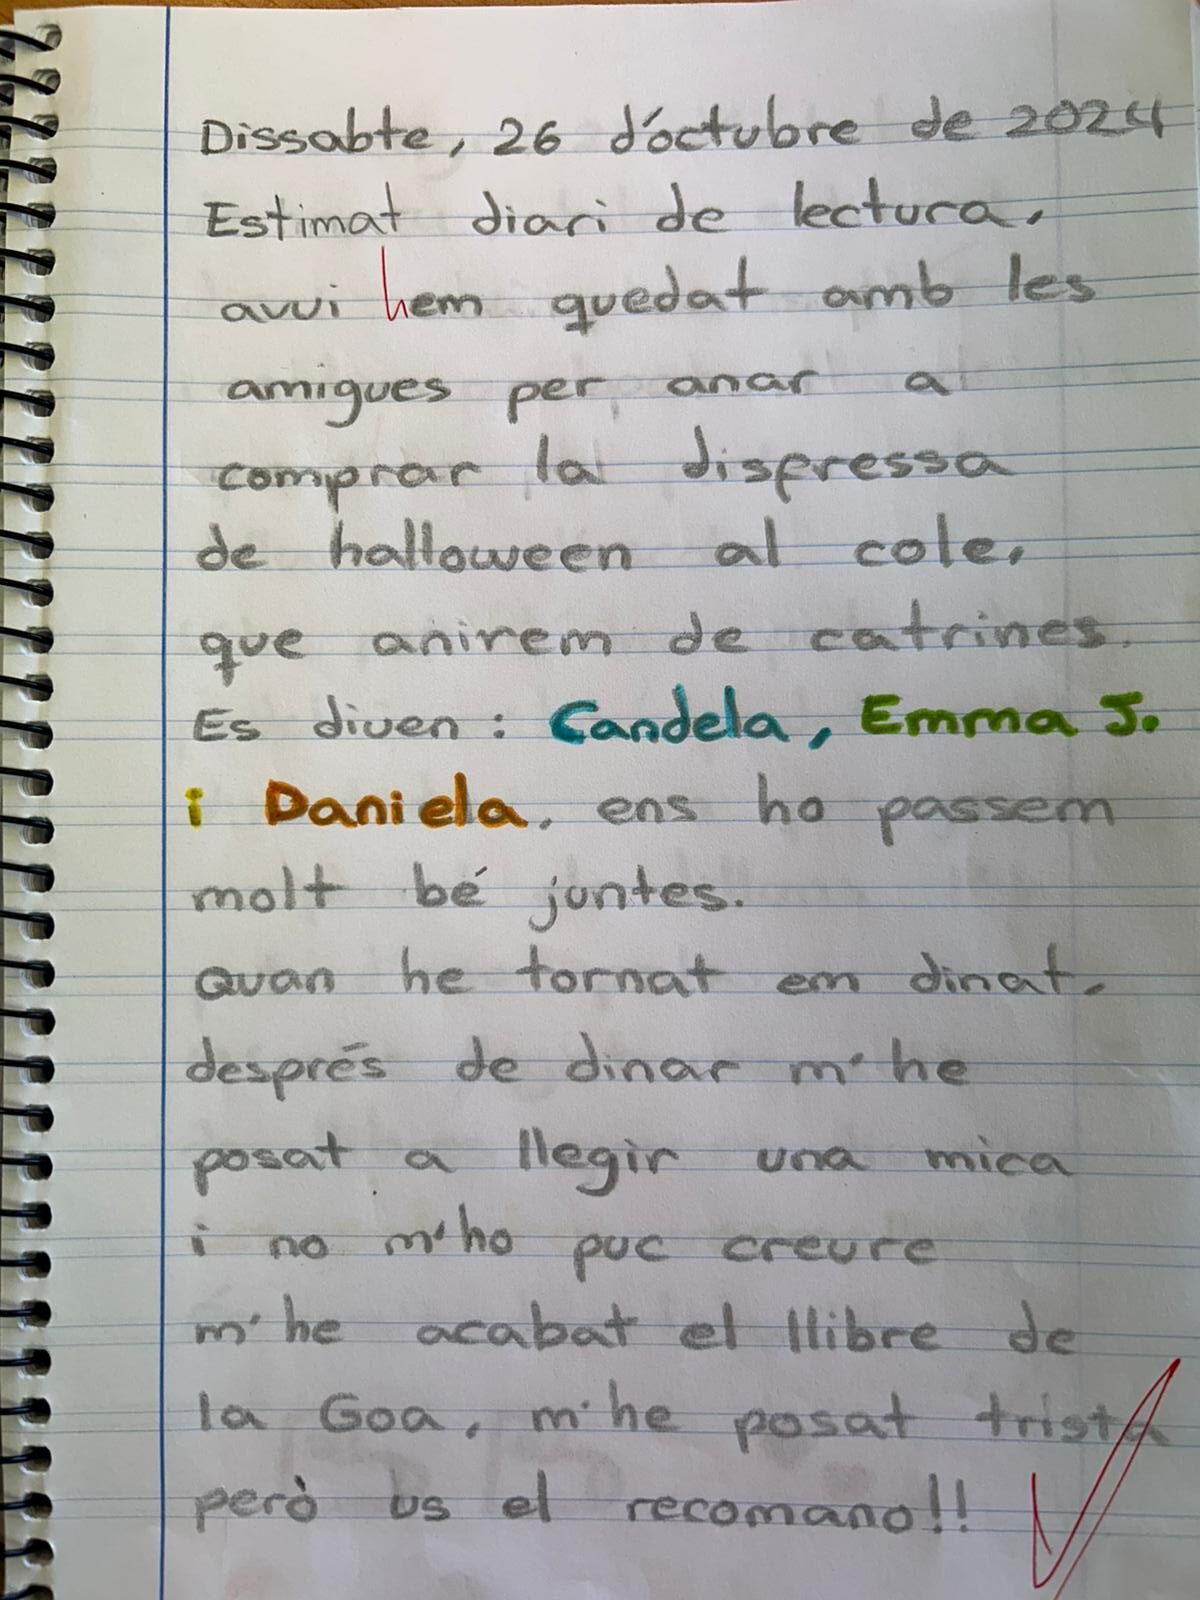 Dissabte, 26 d'octubre de 2024
Estimat diari de lectura,
avui hem quedat amb les
amigues per anar a
comprar la disfressa
de halloween al cole,
que anirem de catrines.
Es diuen : Candela, Emma J.
i Daniela, ens ho passem
molt bé juntes.
Quan he tornat em dinat,
després de dinar m'he
posat a llegir una mica
i no m'ho puc creure
m'he acabat el llibre de
la Goa, m'he posat trista
però us el recomano!!